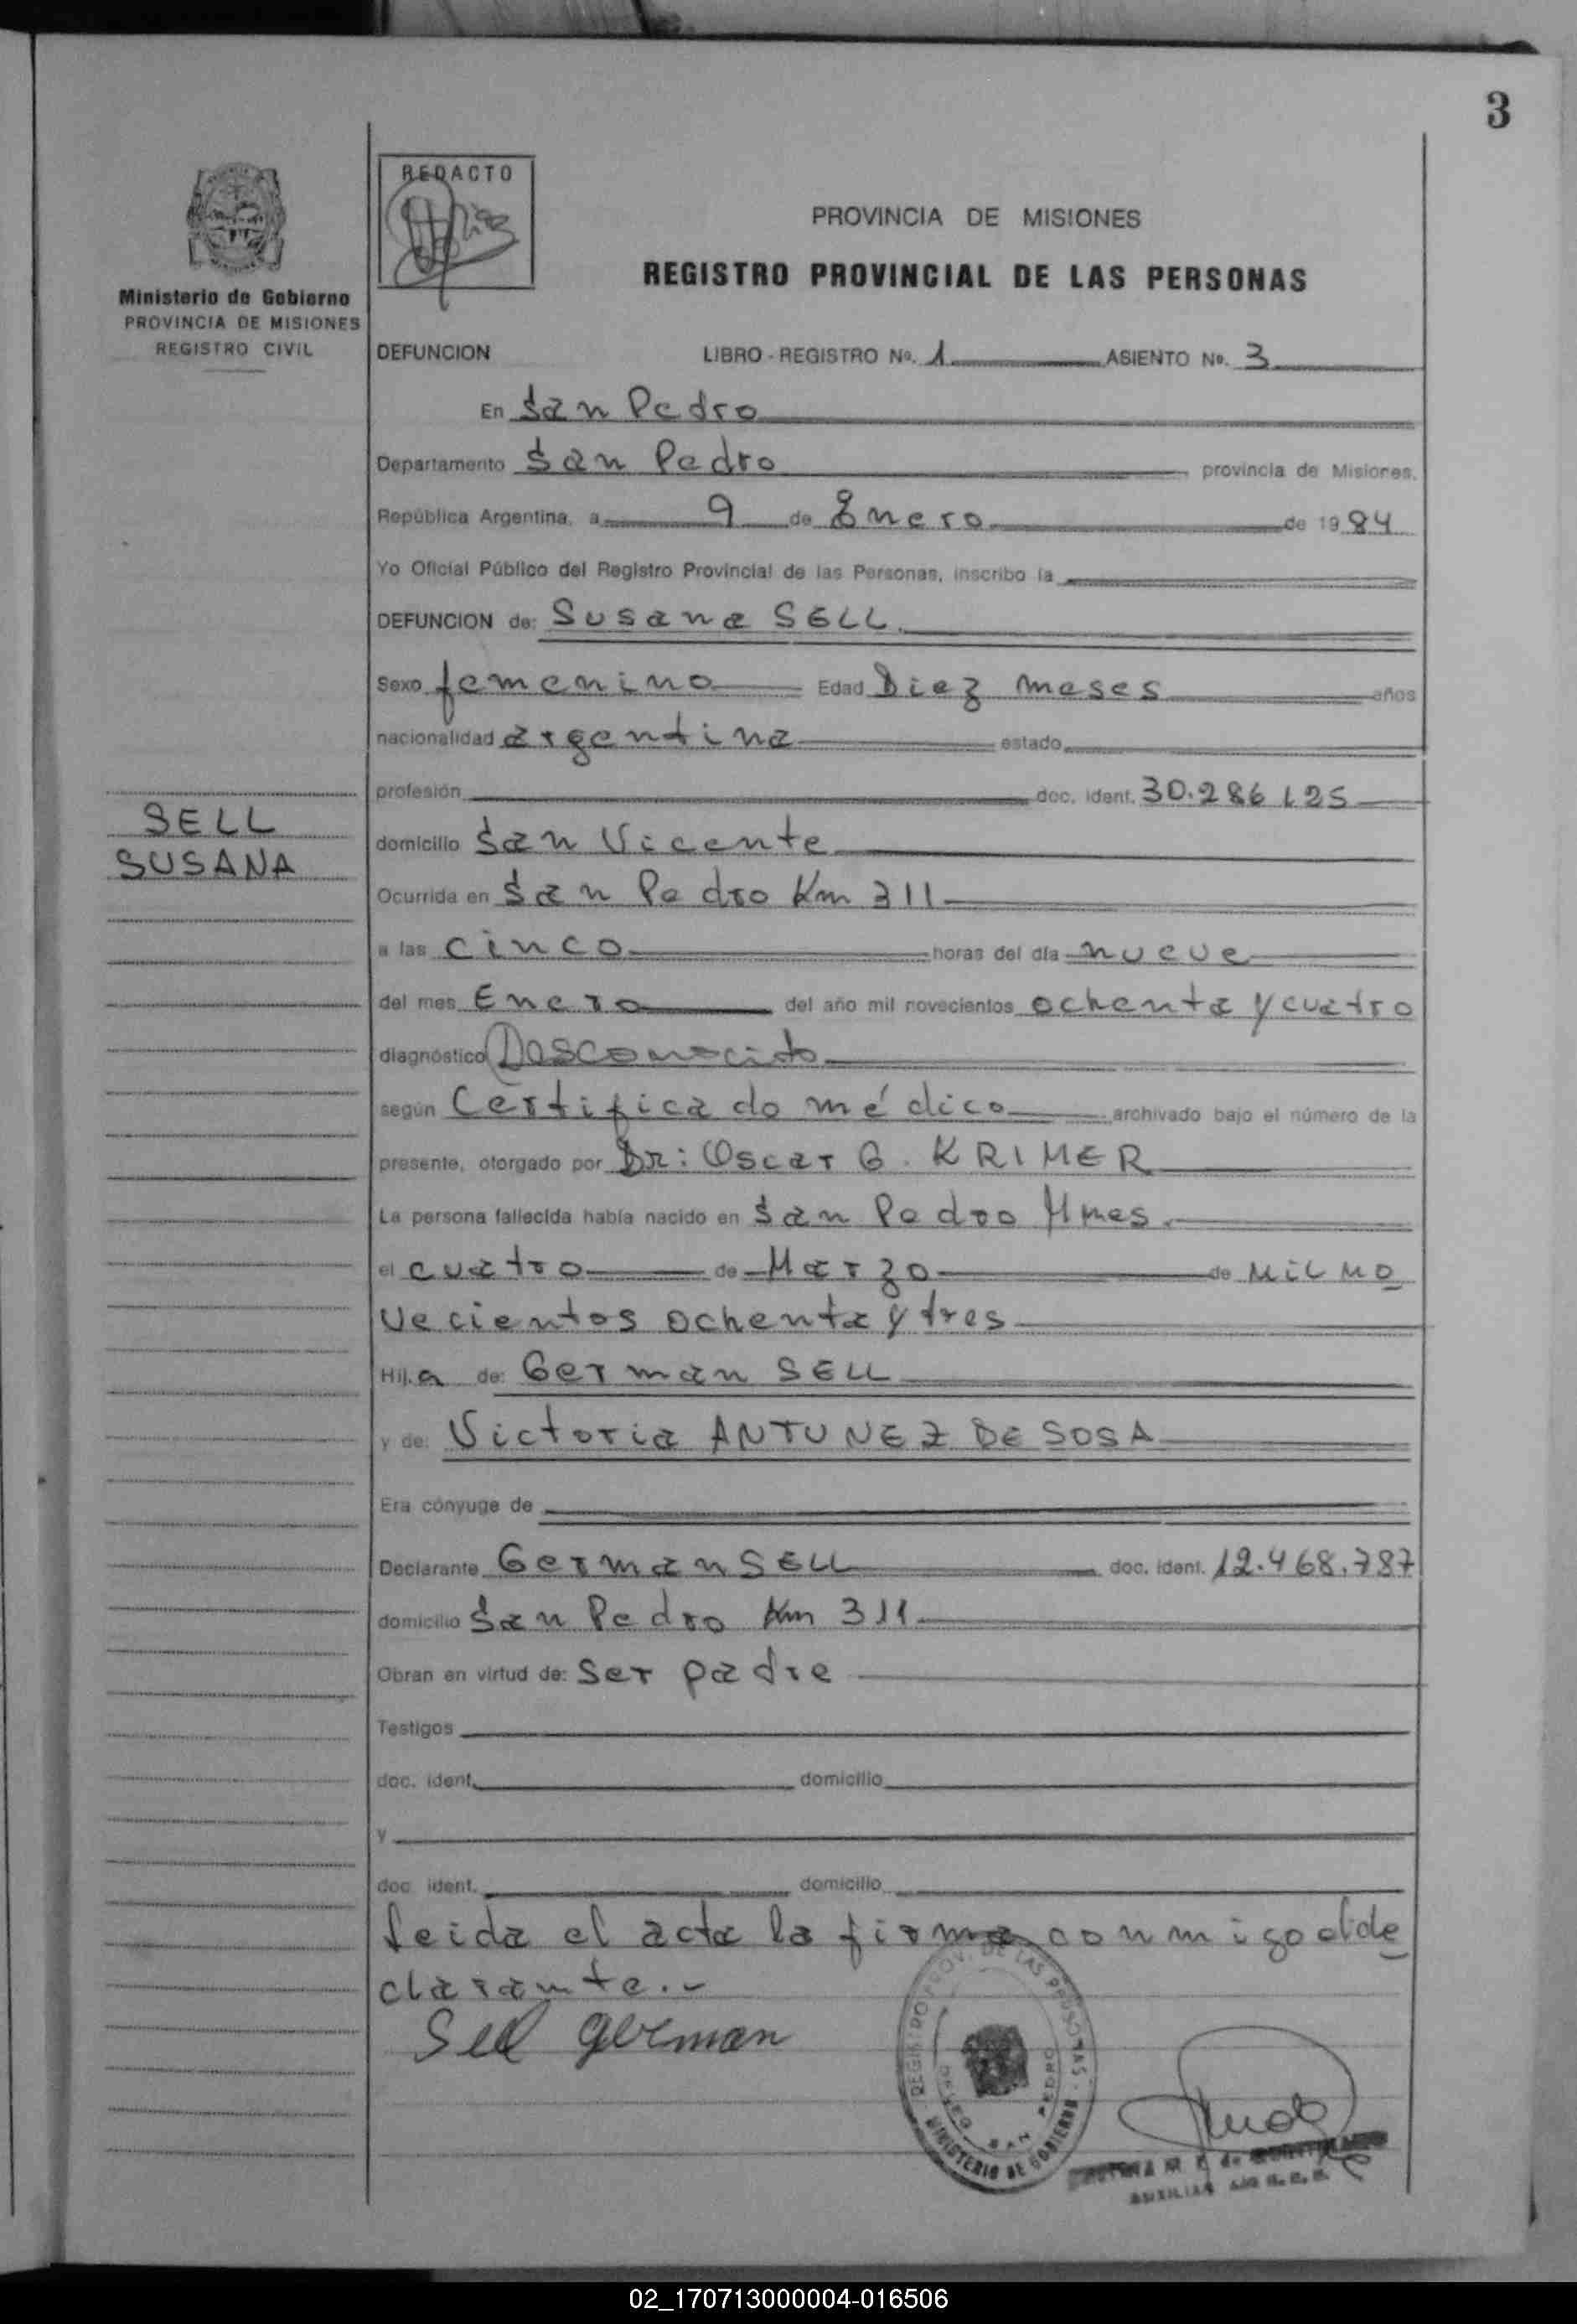 3
REDACTO
PROVINCIA DE MISIONES
REGISTRO PROVINCIAL DE LAS PERSONAS
Ministerio de Gobierno
PROVINCIA DE MISIONES
REGISTRO CIVIL
DEFUNCION LIBRO - REGISTRO No. 1 ASIENTO No. 3
En San Pedro
Departamento San Pedro provincia de Misiones.
República Argentina, a 9 de Enero de 1984
Yo Oficial Público del Registro Provincial de las Personas, inscribo la
DEFUNCION de: Susana SELL
Sexo femenino Edad Diez meses años
nacionalidad argentina estado
profesión doc. ident. 30.286125
SELL
SUSANA
domicilio San Vicente
Ocurrida en San Pedro Km 311
a las cinco horas del día nueve
del mes Enero del año mil novecientos ochenta y cuatro
diagnóstico Desconocido
según Certificado médico archivado bajo el número de la
presente, otorgado por Dr: Oscar G. KRIMER
La persona fallecida había nacido en San Pedro Mnes.
el cuatro de Marzo de Mil no
vecientos ochenta y tres
Hij.a de: German SELL
y de: Victoria ANTUNEZ DE SOSA
Era cónyuge de
Declarante German SELL doc. ident. 12.468.787
domicilio San Pedro Km 311
Obran en virtud de: Ser padre
Testigos
doc. ident. domicilio
y
doc. ident. domicilio
Leida el acta la firma conmigo el de
clarante.-
Sell german
REGISTRO PROV. DE LAS PERSONAS
SAN PEDRO
MINISTERIO DE GOBIERNO
AUXILIAR
02_170713000004-016506